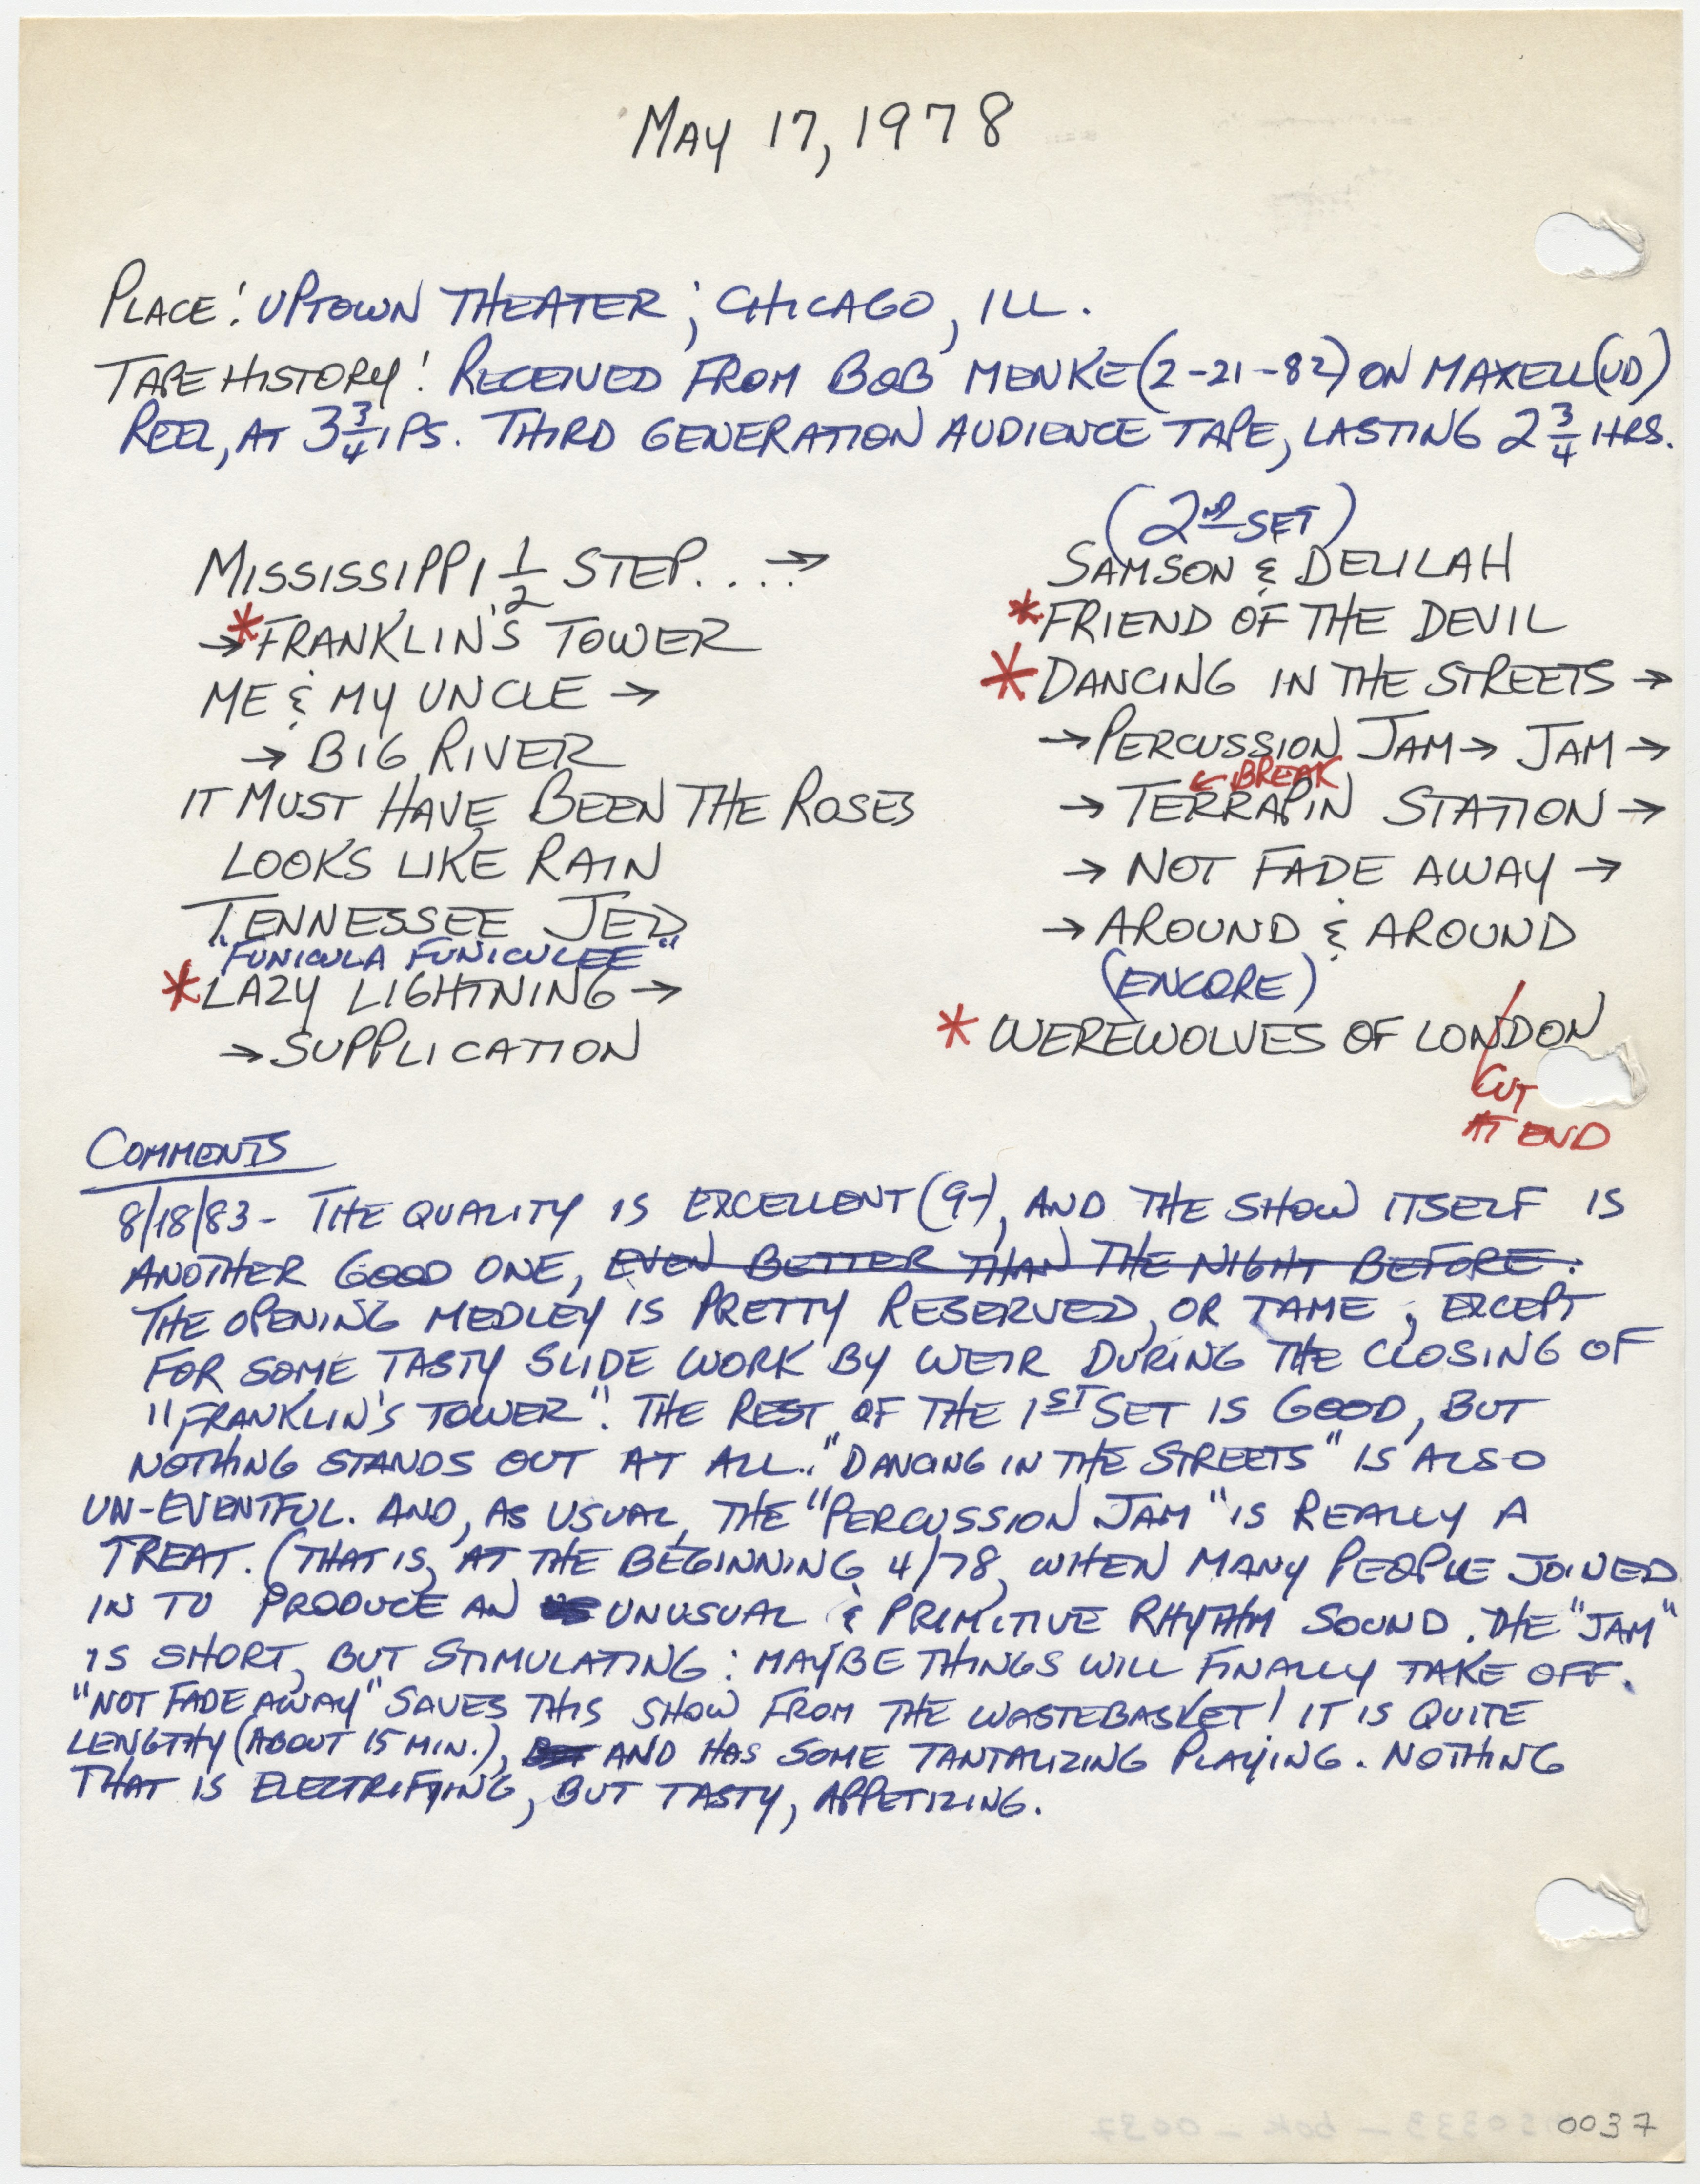 MAY 17, 1978
PLACE: UPTOWN THEATER; CHICAGO, ILL.
TAPE HISTORY: RECEIVED FROM BOB MENKE (2-21-82) ON MAXELL (UD)
REEL, AT 3 3/4 IPS. THIRD GENERATION AUDIENCE TAPE, LASTING 2 3/4 HRS.
MISSISSIPPI 1/2 STEP....→
→*FRANKLIN'S TOWER
ME & MY UNCLE →
→ BIG RIVER
IT MUST HAVE BEEN THE ROSES
LOOKS LIKE RAIN
TENNESSEE JED
"FUNICULA FUNICULEE"
*LAZY LIGHTNING →
→ SUPPLICATION
(2ND SET)
SAMSON & DELILAH
*FRIEND OF THE DEVIL
*DANCING IN THE STREETS →
→ PERCUSSION JAM → JAM →
← BREAK
→ TERRAPIN STATION →
→ NOT FADE AWAY →
→ AROUND & AROUND
(ENCORE)
* WEREWOLVES OF LONDON
CUT
AT END
COMMENTS
8/18/83 - THE QUALITY IS EXCELLENT (9-), AND THE SHOW ITSELF IS
ANOTHER GOOD ONE, EVEN BETTER THAN THE NIGHT BEFORE.
THE OPENING MEDLEY IS PRETTY RESERVED, OR TAME, EXCEPT
FOR SOME TASTY SLIDE WORK BY WEIR DURING THE CLOSING OF
"FRANKLIN'S TOWER". THE REST OF THE 1ST SET IS GOOD, BUT
NOTHING STANDS OUT AT ALL. "DANCING IN THE STREETS" IS ALSO
UN-EVENTFUL. AND, AS USUAL, THE "PERCUSSION JAM" IS REALLY A
TREAT. (THAT IS, AT THE BEGINNING 4/78, WHEN MANY PEOPLE JOINED
IN TO PRODUCE AN UNUSUAL & PRIMITIVE RHYTHM SOUND. THE "JAM"
IS SHORT, BUT STIMULATING: MAYBE THINGS WILL FINALLY TAKE OFF.
"NOT FADE AWAY" SAVES THIS SHOW FROM THE WASTEBASKET! IT IS QUITE
LENGTHY (ABOUT 15 MIN.), AND HAS SOME TANTALIZING PLAYING. NOTHING
THAT IS ELECTRIFYING, BUT TASTY, APPETIZING.
0037